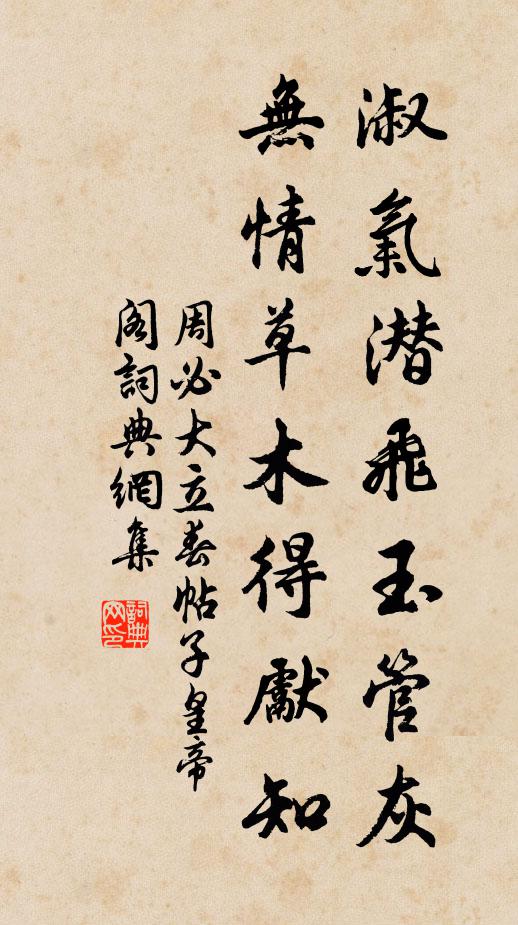 淑氣潛飛玉管灰
無情草木得獻知
周必大立春帖子皇帝
閣詞典網集
詞典网印